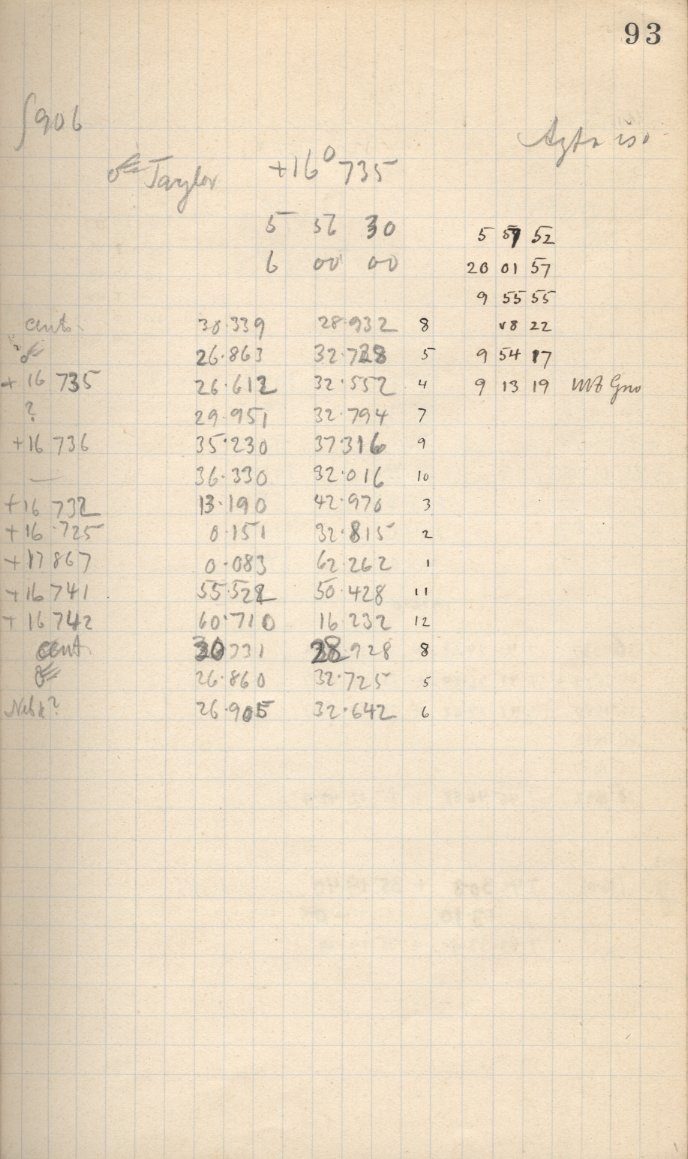 93
∫906
Taylor +16° 735
5 56 30
6 00 00
5 57 52
20 01 57
9 55 55
18 22
9 54 17
9 13 19
cent. 30.339 28.932 8
26.863 32.728 5
+16 735 26.612 32.552 4
? 29.951 32.794 7
+16 736 35.230 37316 9
— 36.330 32.016 10
+16 732 13.190 42.970 3
+16.725 0.151 32.815 2
+17 867 0.083 62.262 1
+16 741 55.522 50.428 11
+16 742 60.710 16.232 12
cent. 30 331 28.928 8
26.860 32.725 5
26.905 32.642 6